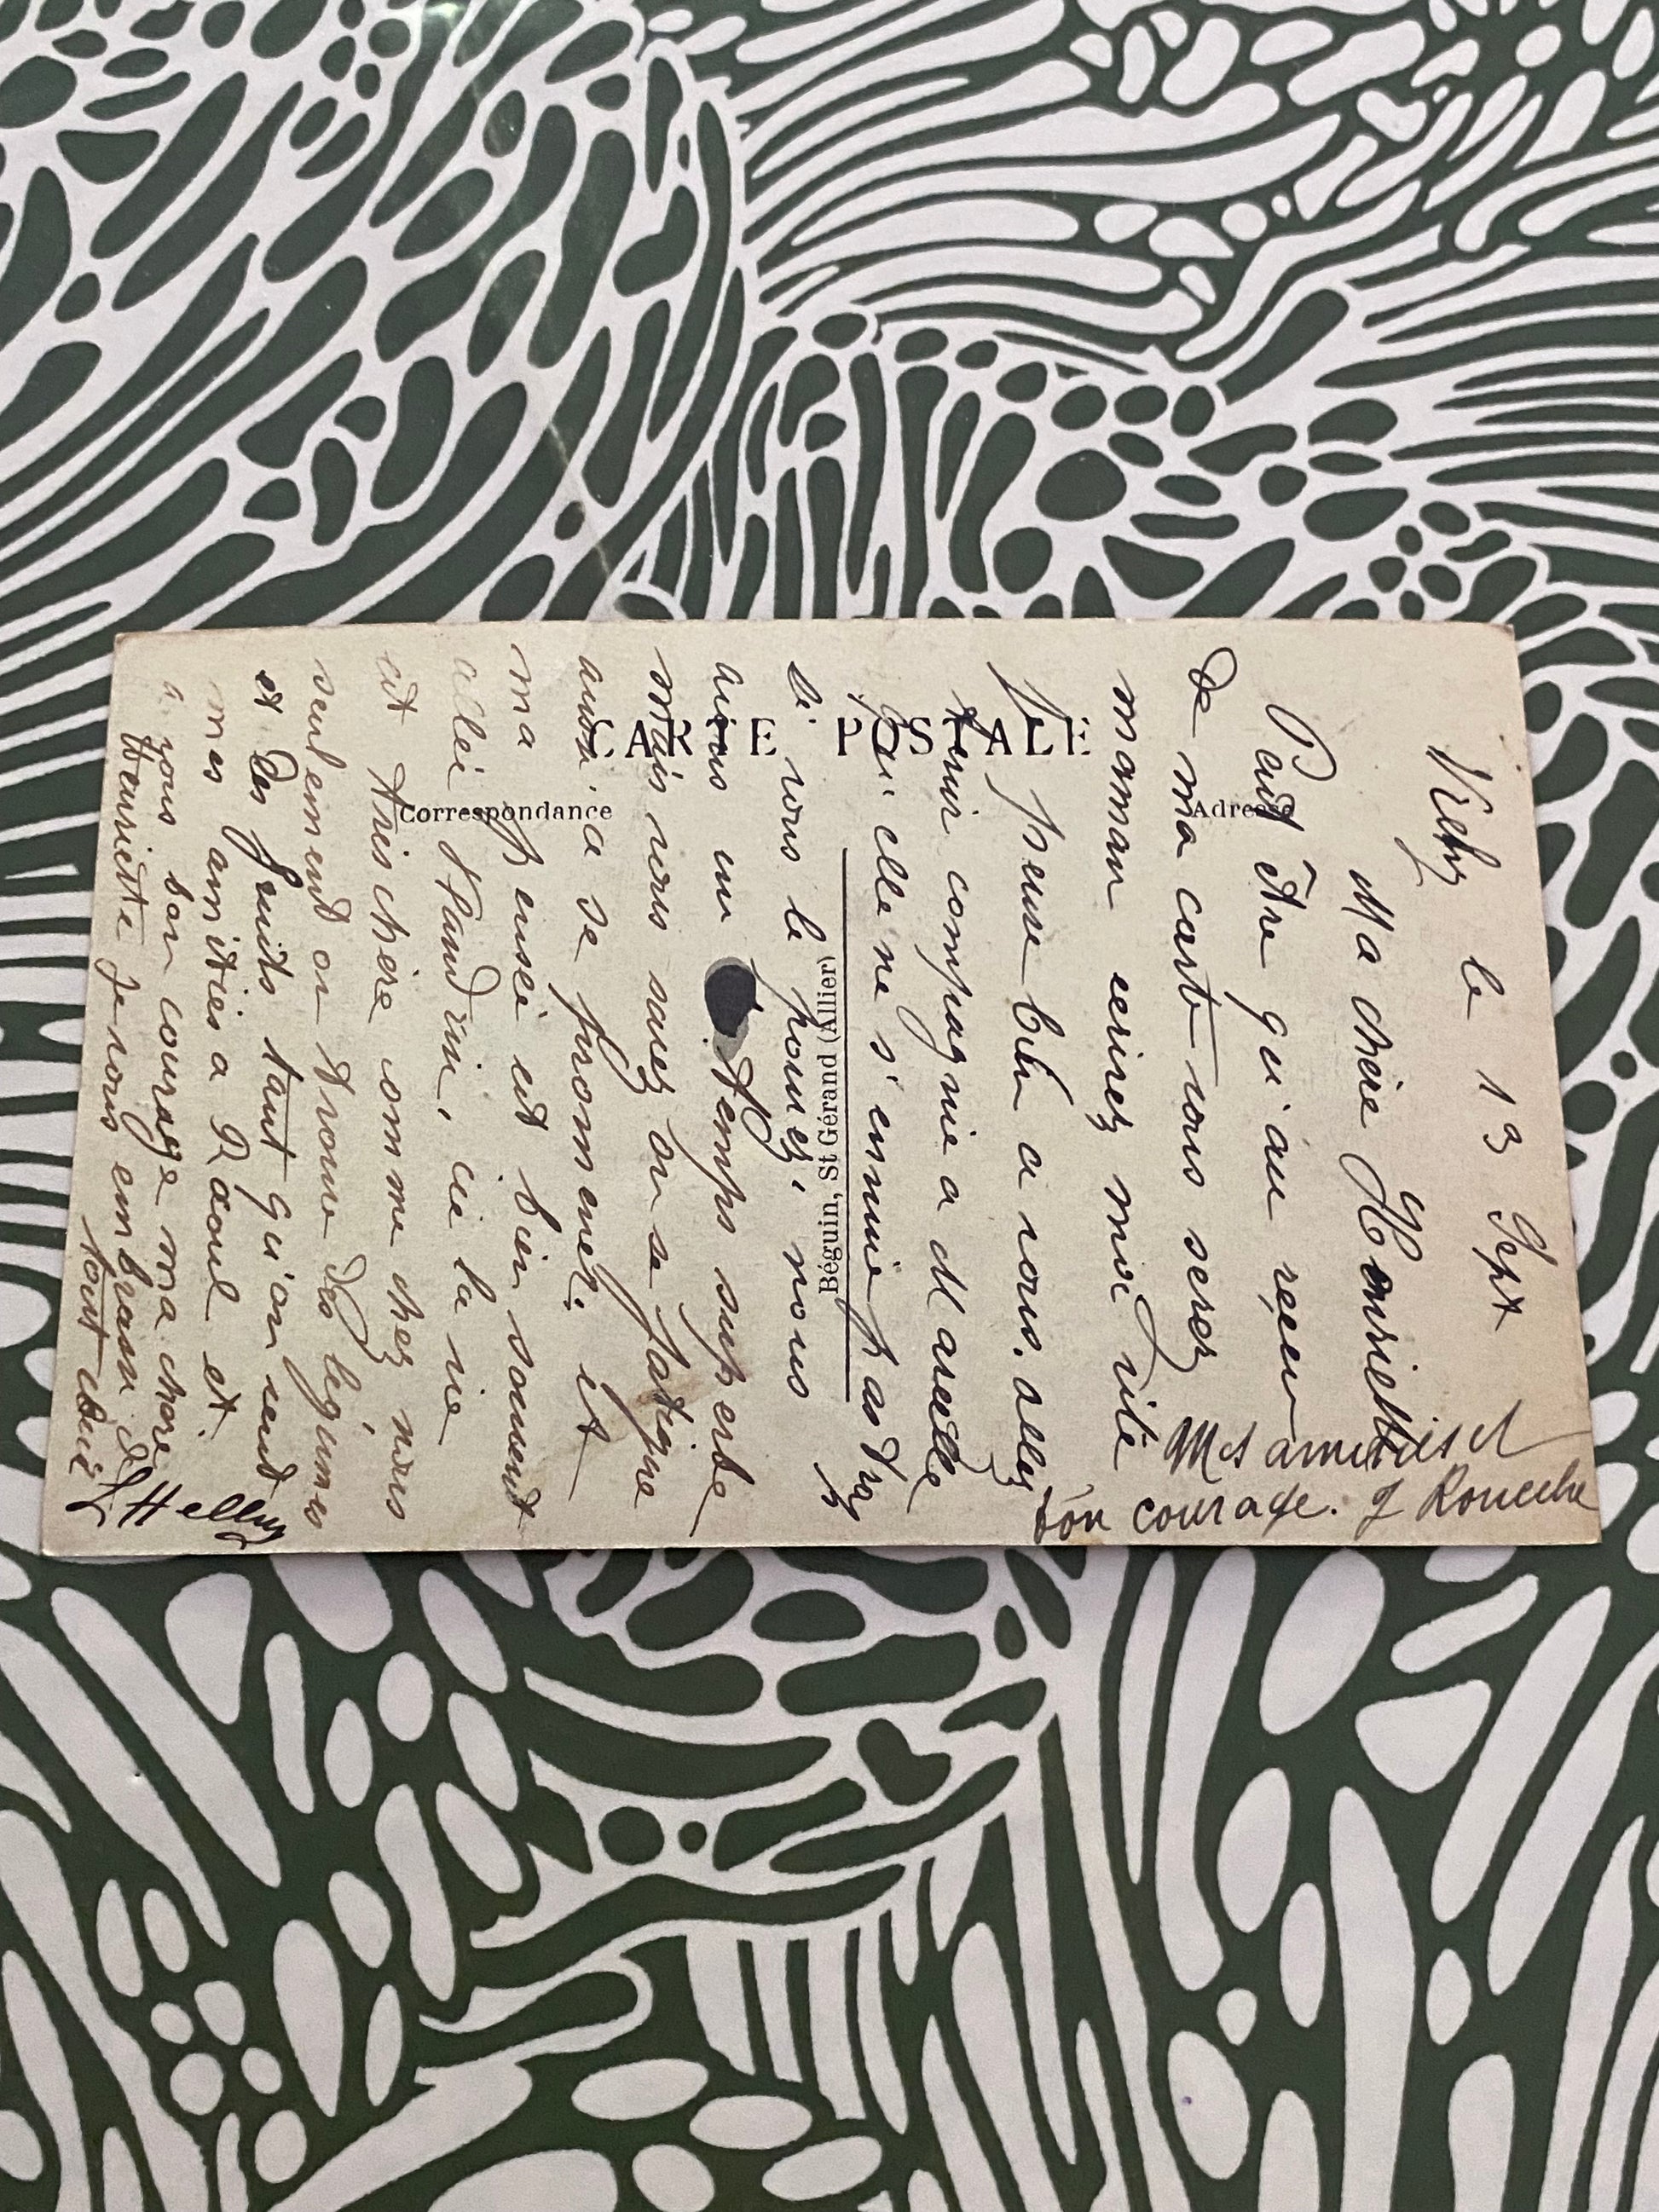 CARTE POSTALE
Correspondance
Adresse
Béguin, St Gérand (Allier)
Vichy le 13 Sept
Ma chère Henriette
Peut être qu'au reçu
de ma carte vous serez
maman ecrivez moi vite
Je pense bien a vous. allez
tenir compagnie a Marcelle
qu'elle ne s'ennuie pas trop
si vous le pouvez, nous
avons un temps superbe
mais vous savez on se fatigue
aussi a se promener. et
ma pensée est bien souvent
allei Flandrin, ici la vie
est très chère comme chez nous
seulement on trouve des légumes
et des fruits tant qu'on veut
mes amitiés a Raoul et
a vous bon courage ma chère
Henriette je vous embrasse
tout deux
Mes amitiés et
bon courage. J Roueche